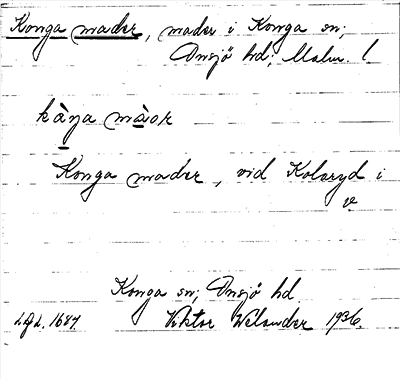 Konga mader, mader i Konga sn;
Onsjö hd; Malm. l
kàŋa màor
Konga mader, vid Kolaryd i
Konga sn; Onsjö hd
1684.
Viktor Welander 1936.